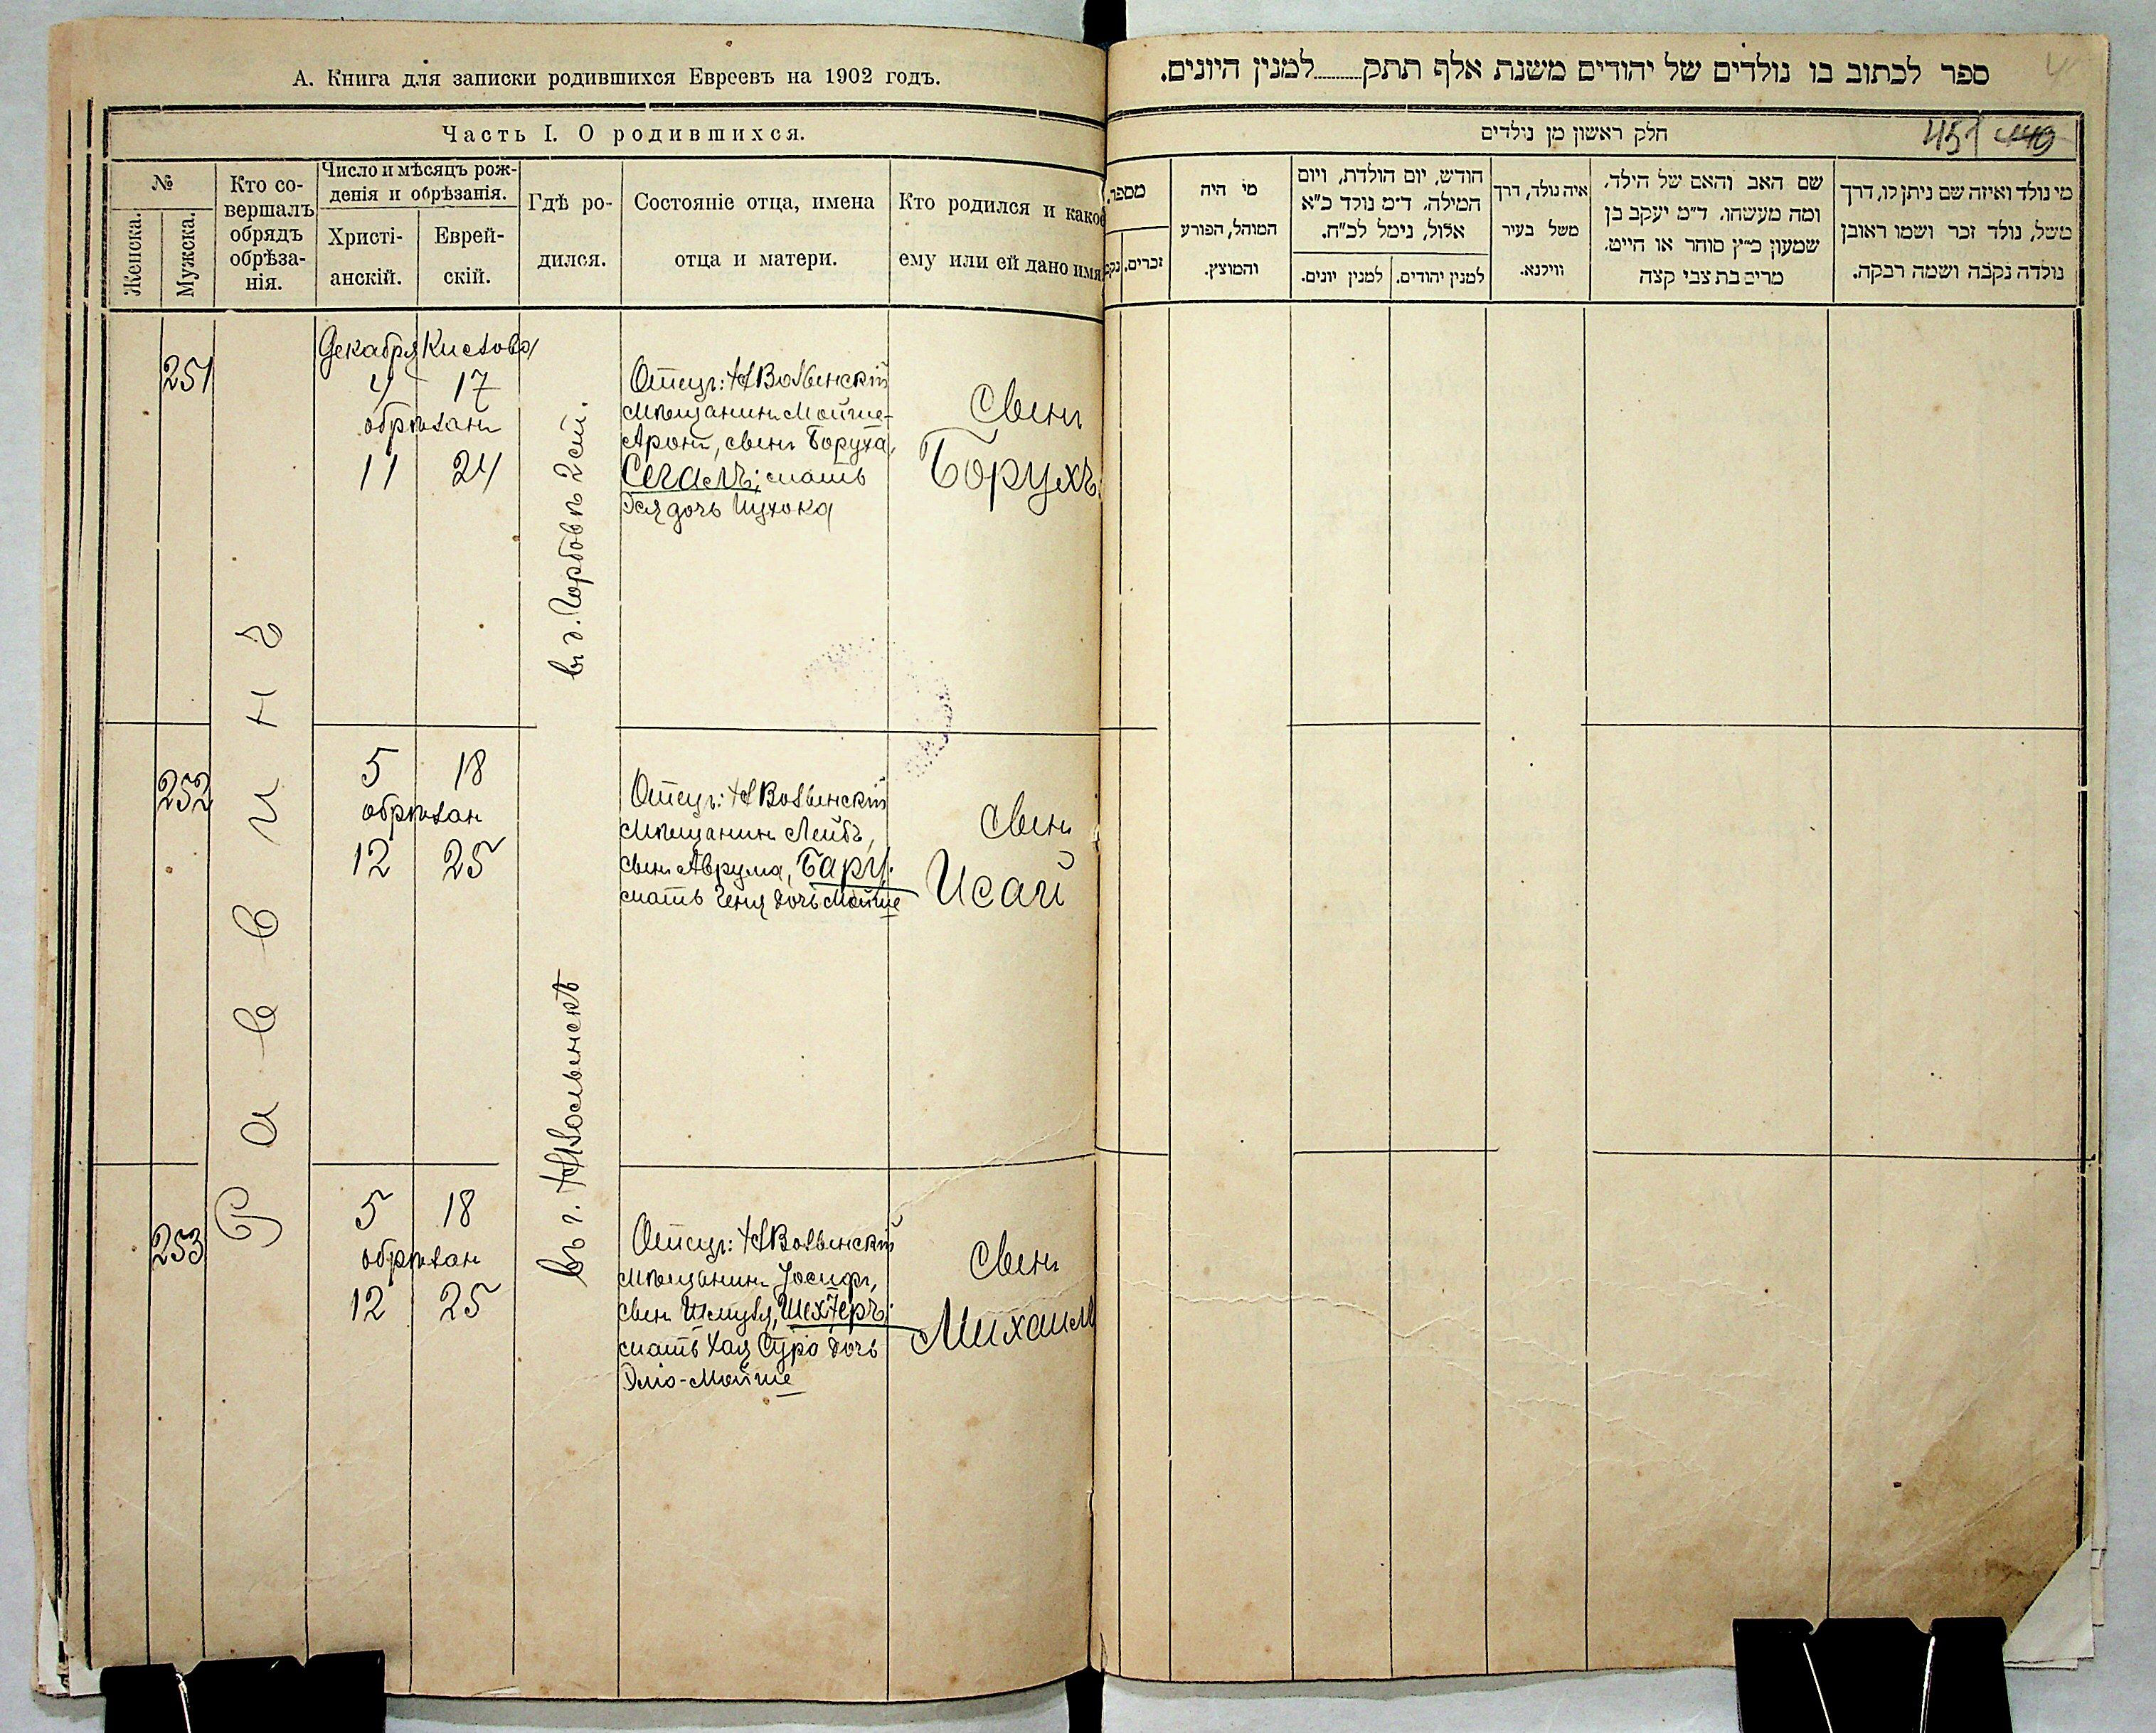 А. Книга для записки родившихся Евреевъ на 1902 годъ.
Часть I. О родившихся.
№
Женска.
Мужска.
Кто со-
вершалъ
обрядъ
обрѣза-
нія.
Число и мѣсяцъ рож-
денія и обрѣзанія.
Христі-
анскій.
Еврей-
скій.
Гдѣ ро-
дился.
Состояніе отца, имена
отца и матери.
Кто родился и какое
ему или ей дано имя
Раввинъ
251
Декабря Кислова
4 17
обрѣзанъ
11 24
въ д.
2 ст.
Отецъ: Н Волынскій
мѣщанинъ Мойше-
Аронъ, сынъ Боруха,
Сегалъ; мать
Эся дочь Ицхока
Сынъ
Борухъ
252
5 18
обрѣзан
12 25
въ г. НВолынскѣ
Отецъ: Н Волынскій
мѣщанинъ Лейбъ,
сынъ Аврума,
мать Геня дочь Мойше
Сынъ
Исай
253
5 18
обрѣзан
12 25
Отецъ: Н Волынскій
мѣщанинъ Іосифъ,
сынъ Шмуля, Шехтеръ;
мать Хая Сура дочь
Эліо-Мойше
Сынъ
Михаилъ
ספר לכתוב בו נולדים של יהודים משנת אלף תתק......למנין היונים.
חלק ראשון מן נולדים
451 449
מי נולד ואיזה שם ניתן לו, דרך
משל, נולד זכר ושמו ראובן
נולדה נקבה ושמה רבקה.
שם האב והאם של הילד,
ומה מעשהו, ד״מ יעקב בן
שמעון כ״ץ סוחר או חייט,
מרים בת צבי קצה
איה נולד, דרך
משל בעיר
ווילנא.
חודש, יום הולדת, ויום
המילה, ד״מ נולד כ״א
אלול, נימל לכ״ח.
למנין יהודים.
למנין יונים.
מי היה
המוהל, הפורע
והמוצץ.
מספר.
זכרים.